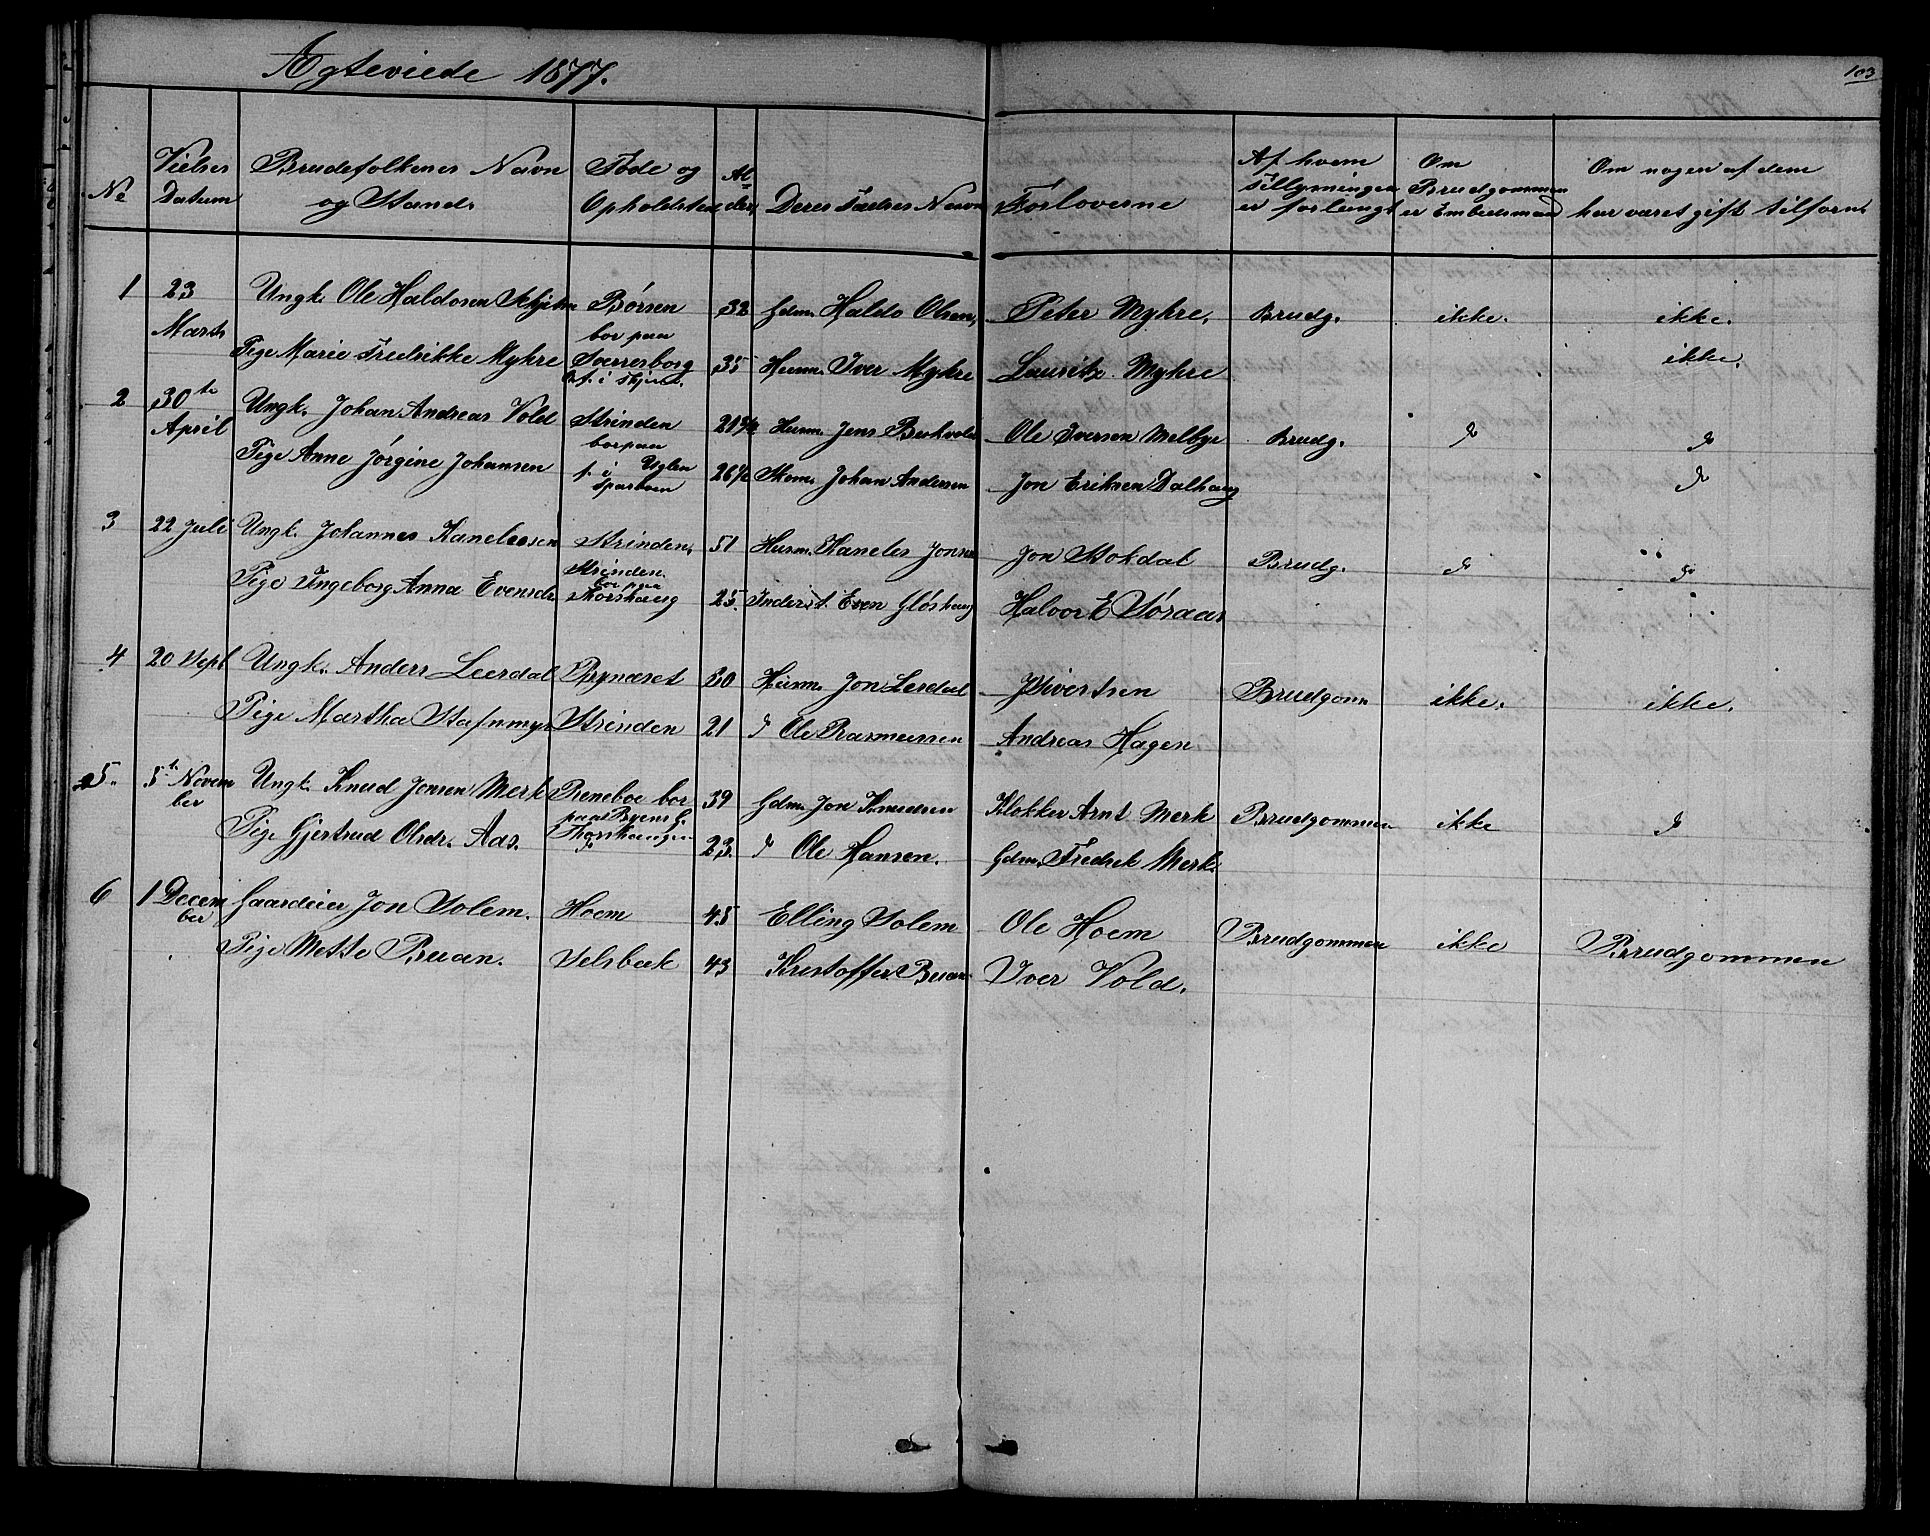 Ægteviede 1877.
103
No
Vielses Datum
Brudefolkenes Navn og Stand.
Føde og Opholdsted
Alder
Deres Fædres Navn
Forloverne
Af hvem Tillysningen er forlangt
Om Brudgommen er Embedsmand
Om nogen af dem har været gift tilforn.
1 23 Ungk. Ole Haldosen Børsen 32 Gdm. Haldo Olsen, Peter Myhre, Brudg. ikke. ikke.
Marts bor paa
Pige Marie Fredrikke Myhre Sverresborg 35 Husm. Iver Myhre Lauritz Myhre ikke.
2 30te Ungk. Johan Andreas Vold Strinden Husm. Jens Ole Iversen Melbye Brudg. do do
April bor paa Uglen
Pige Anne Jørgine Johansen f. i Sparboen 26½ Skom. Johan Andersen Jon Eriksen Dalhaug do
3 22 Juli Ungk. Johannes Kanelesen Strinden, 51 Husm. Kaneles Jonsen Jon Stokdal Brudg. do do
Strinden.
bor paa
Pige Ingeborg Anna Evensdr Thorshaug 25. Inderst. Even Haloor E Søraas
4 20 Sept Ungk. Anders Leerdal Bynæset 30 Husm. Jon Lerdal J Sivertsen Brudgom ikke. ikke.
Pige Martha Stafnmyr Strinden 21 do Ole Rasmussen Andreas Hagen
5. 5t Novem Ungk. Knud Jonsen Merk Reneboe bor 39 Gdm. Jon Knudsen Klokker Arnt Merk Brudgommen ikke do
ber paa Byens G.
Pige Gjertrud Olsdr. Aas. 23. do Ole Hansen. Gdm. Fredrik Merk.
6 1 Decem Gaardeier Jon Solem. Hoem 45 Elling Solem Ole Hoem Brudgommen ikke Brudgommen
ber
Pige Mette Buan. Selsbak 43 Kristoffer Buan Iver Vold.